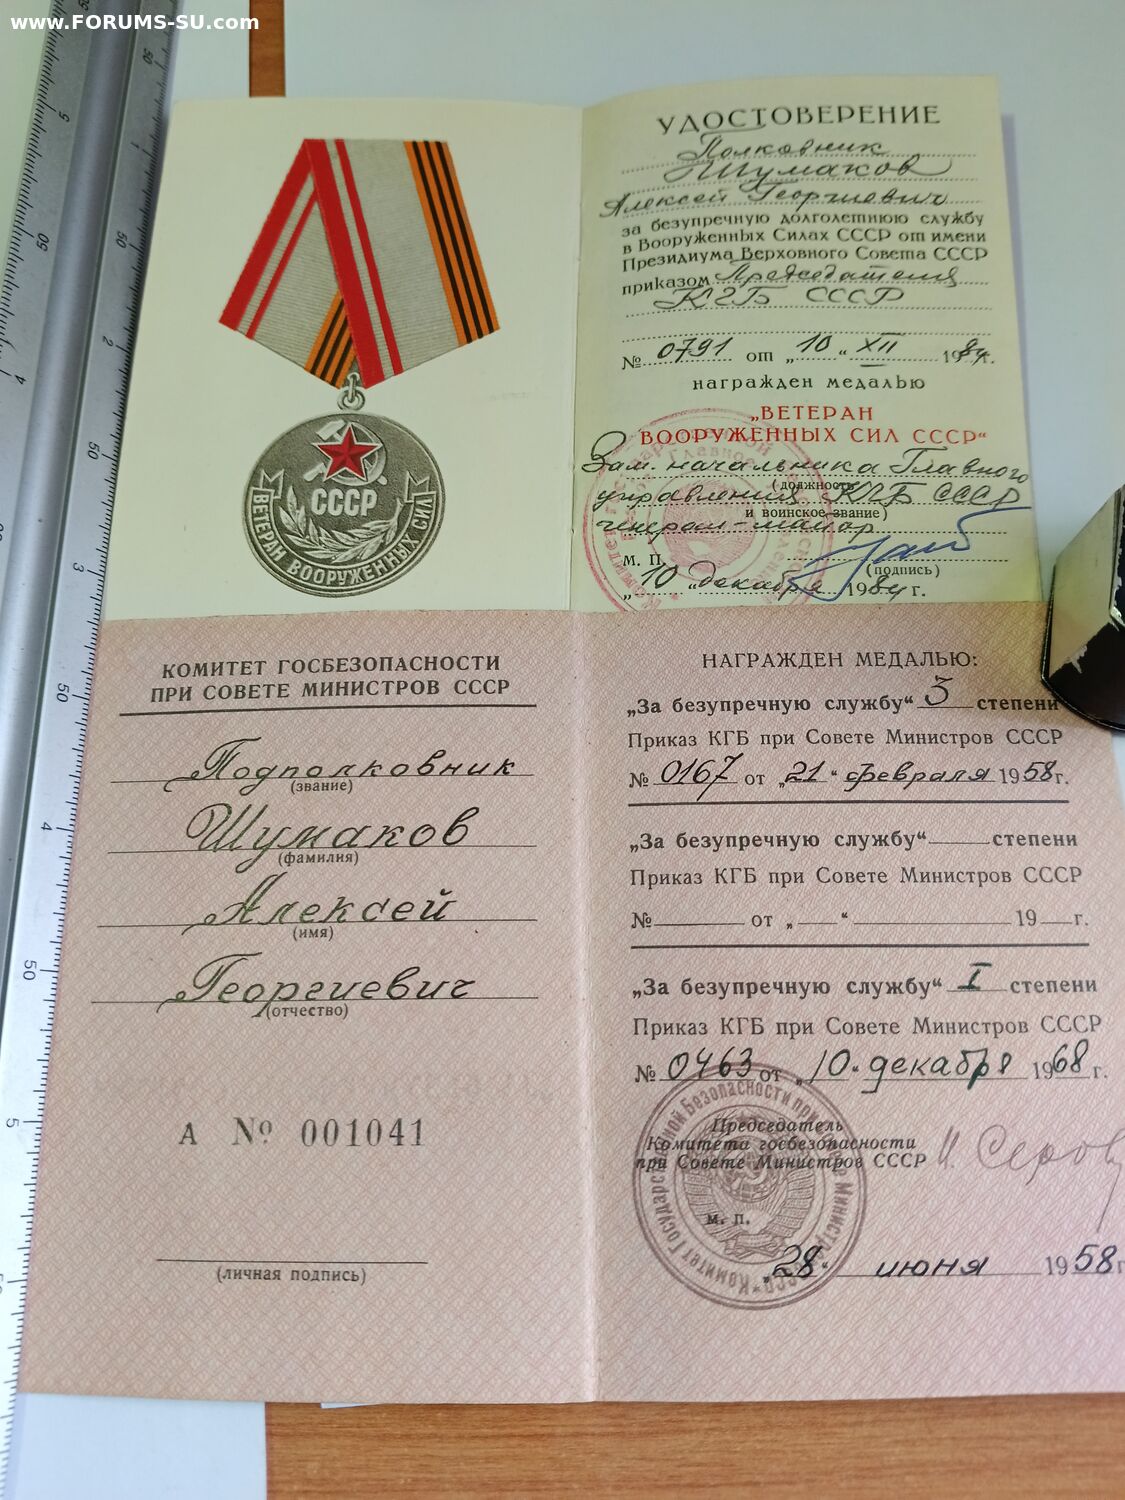 www.FORUMS-SU.com
СССР
ВЕТЕРАН ВООРУЖЕННЫХ СИЛ
УДОСТОВЕРЕНИЕ
Полковник
Шумаков
Алексей Георгиевич
за безупречную долголетнюю службу
в Вооруженных Силах СССР от имени
Президиума Верховного Совета СССР
приказом Председателя
КГБ СССР
№ 0791 от „10“ XII 1984г.
награжден медалью
„ВЕТЕРАН
ВООРУЖЕННЫХ СИЛ СССР“
Зам. начальника Главного
(должность
управления КГБ СССР
и воинское звание)
генерал-майор
м. П.
(подпись)
„10“ декабря 1984г.
КОМИТЕТ ГОСБЕЗОПАСНОСТИ
ПРИ СОВЕТЕ МИНИСТРОВ СССР
Подполковник
(звание)
Шумаков
(фамилия)
Алексей
(имя)
Георгиевич
(отчество)
А № 001041
(личная подпись)
НАГРАЖДЕН МЕДАЛЬЮ:
„За безупречную службу“ 3 степени
Приказ КГБ при Совете Министров СССР
№ 0167 от „21“ февраля 1958г.
„За безупречную службу“ степени
Приказ КГБ при Совете Министров СССР
№ от „ “ 19 г.
„За безупречную службу“ I степени
Приказ КГБ при Совете Министров СССР
№ 0463 от „10“ декабря 1968г.
Председатель
Комитета госбезопасности
при Совете Министров СССР И. Серов
м. п.
„28“ июня 1958г